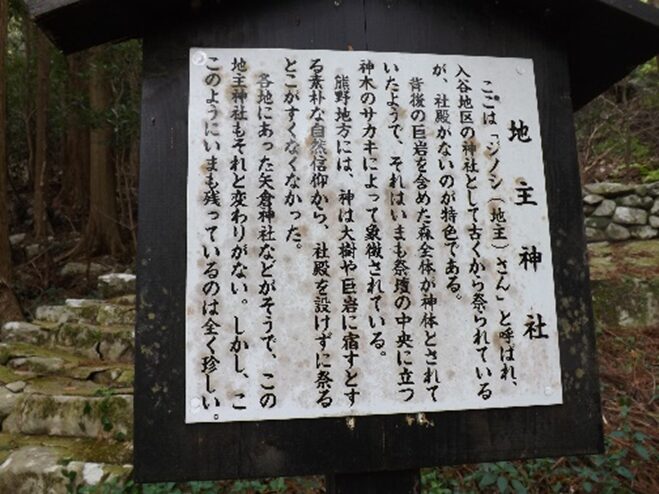 地主神社
ここは「ジノシ(地主)さん」と呼ばれ、
入谷地区の神社として古くから祭られている
が、社殿がないのが特色である。
背後の巨岩を含めた森全体が神体とされて
いたようで、それはいまも祭壇の中央に立つ
神木のサカキによって象徴されている。
熊野地方には、神は大樹や巨岩に宿すとす
る素朴な自然信仰から、社殿を設けずに祭る
とこがすくなくなかった。
各地にあった矢倉神社などがそうで、この
地主神社もそれと変わりがない。しかし、こ
このようにいまも残っているのは全く珍しい。